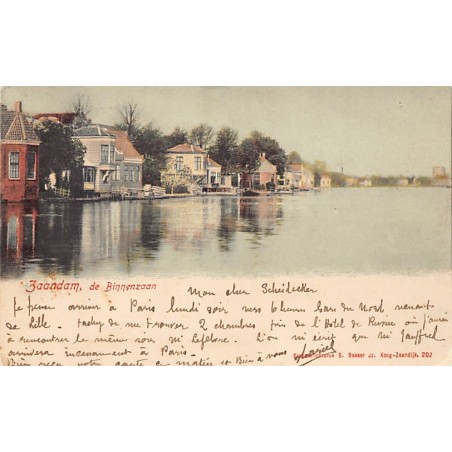 Zaandam, de Binnenzaan
Mon cher Scheidecker
Je pense arriver à Paris lundi soir vers 6 heures Gare du Nord venant
de Lille. tachez de me trouver 2 chambres près de l'Hotel de Russie où j'aurai
à rencontrer le même soir mr Lefebvre. L'on m'écrit que mr
arrivera incessamment à Paris.
Bien reçu votre carte ce matin et Bien à vous
S. Bakker Jz. Koog-Zaandijk. 202